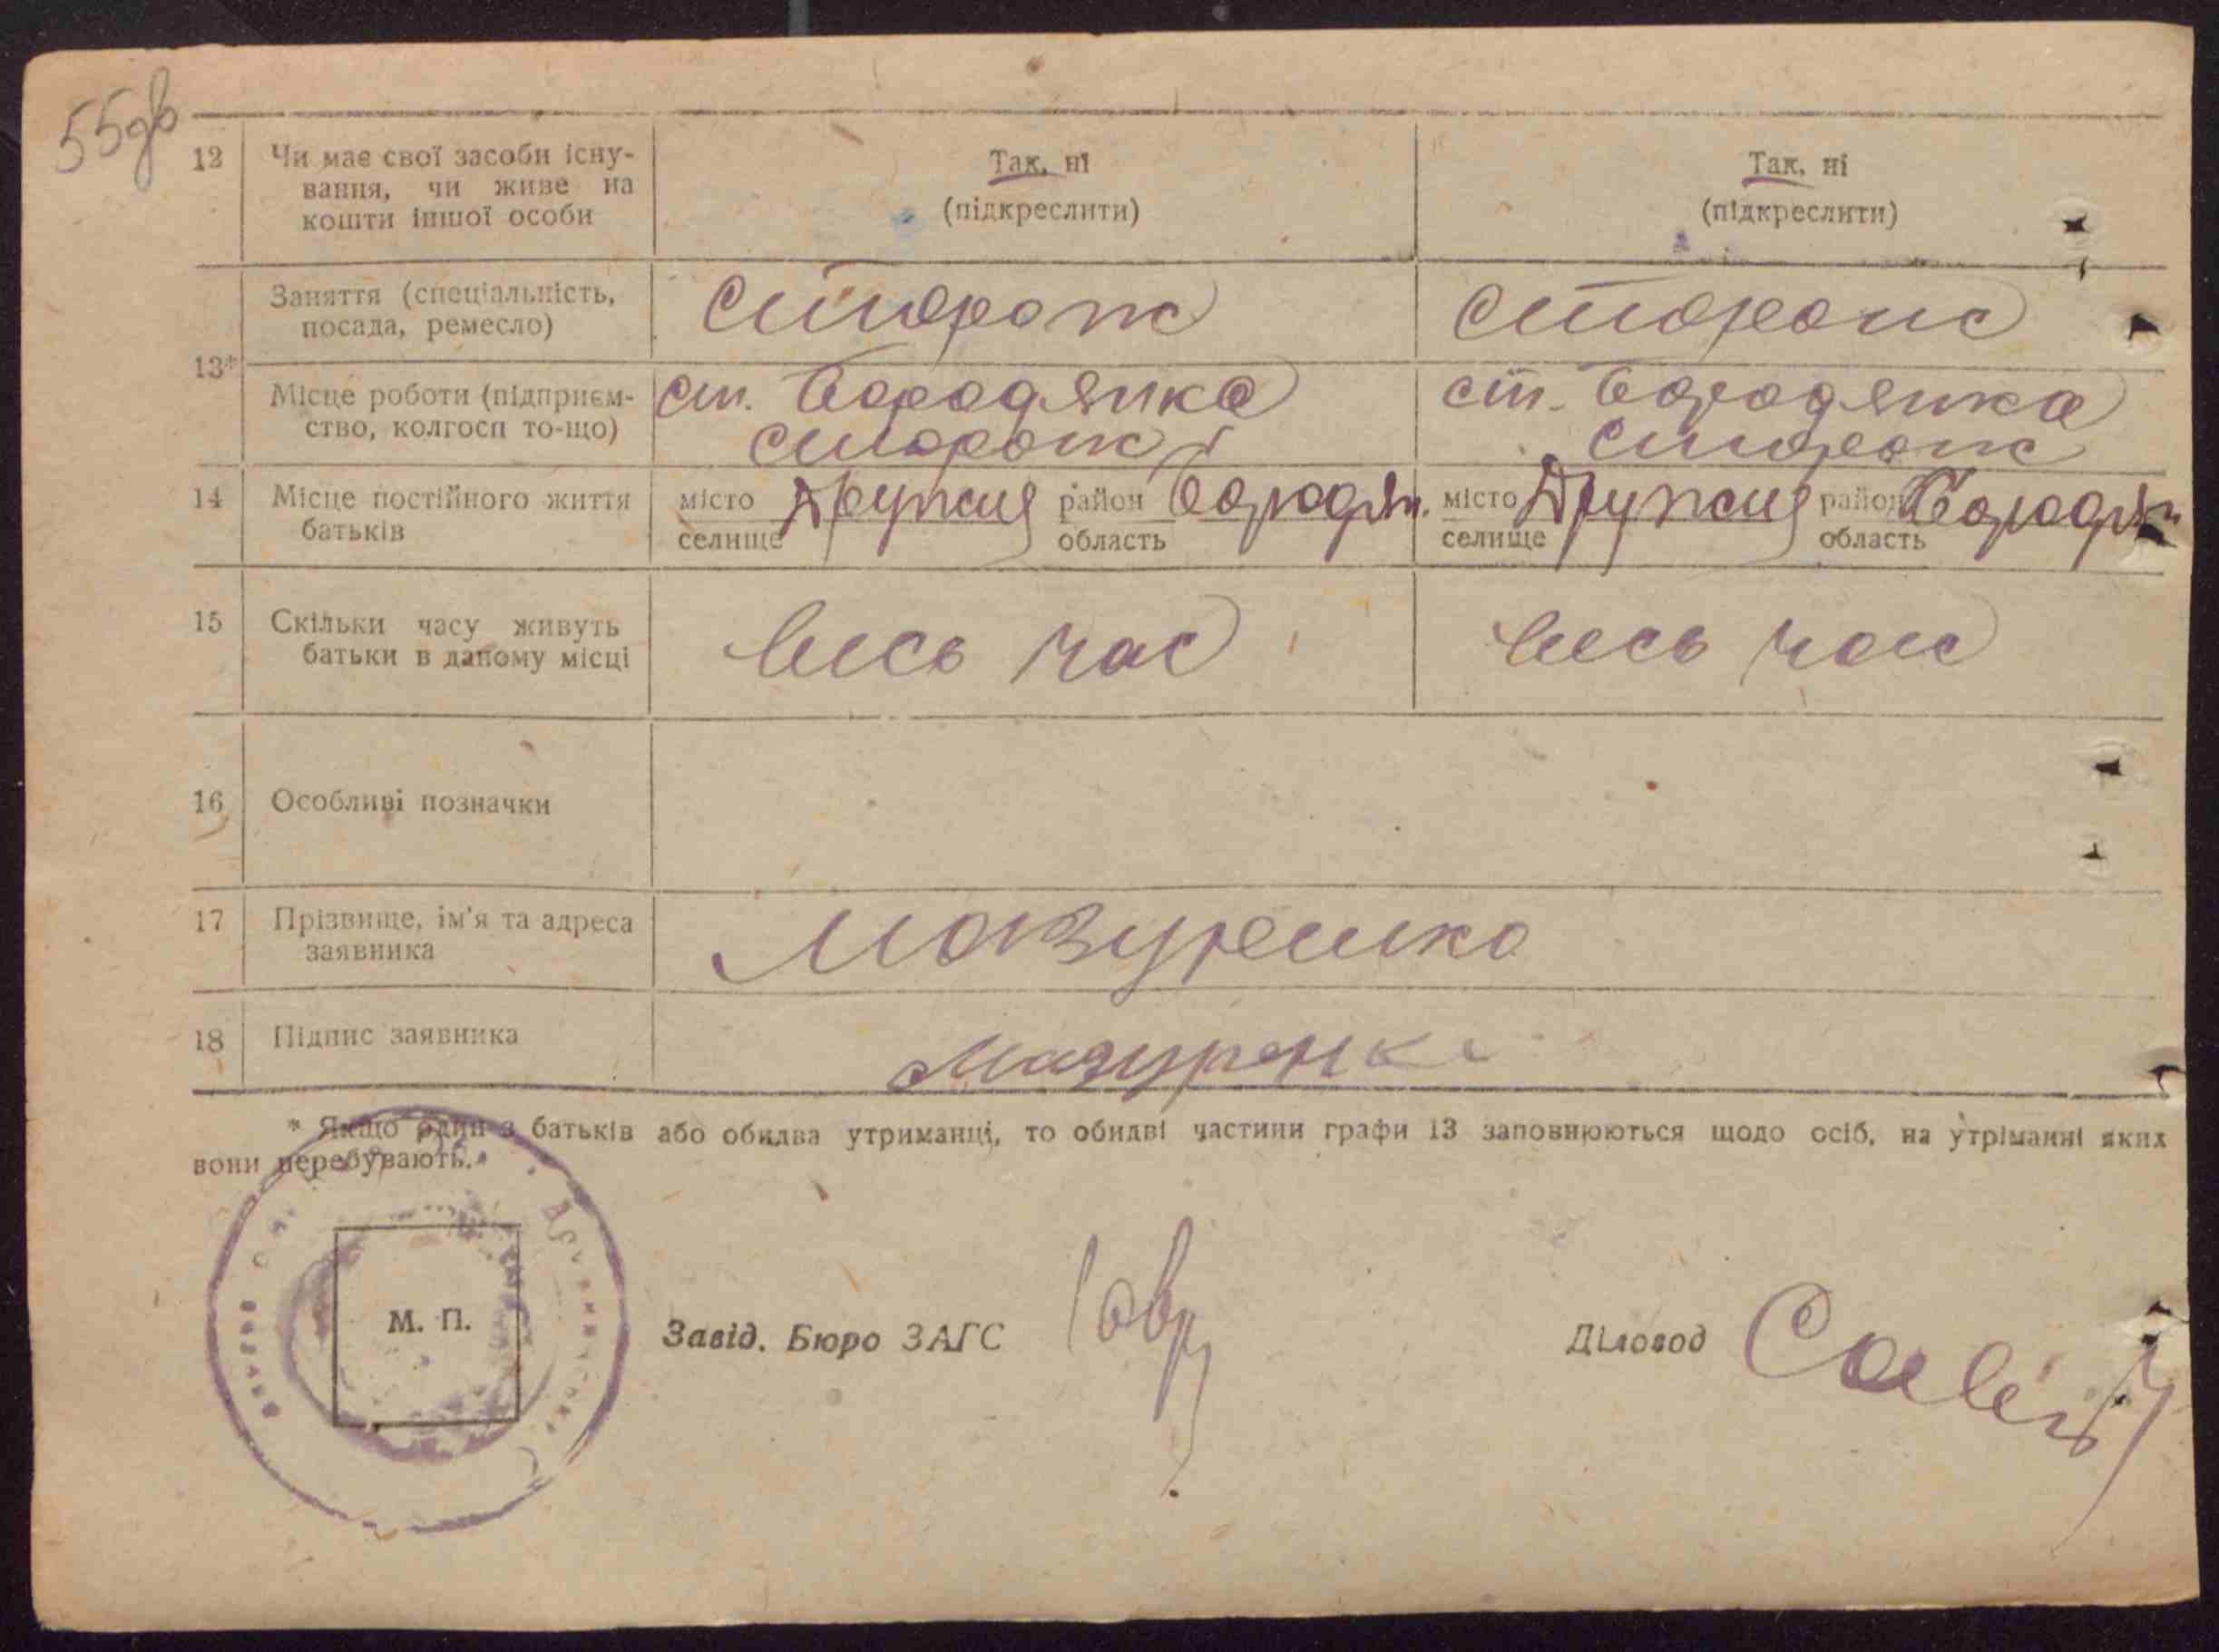 55
12 Чи має свої засоби існу-
вання, чи живе на
кошти іншої особи
Так, ні
(підкреслити)
Так, ні
(підкреслити)
13* Заняття (спеціальність,
посада, ремесло)
сторож
сторож
Місце роботи (підприєм-
ство, колгосп то-що)
ст. Бородянка
сторож
ст. Бородянка
сторож
14 Місце постійного життя
батьків
місто Дружня район Бородян.
селище область
місто Дружня район Бородян
селище область
15 Скільки часу живуть
батьки в даному місці
весь час
весь час
16 Особливі позначки
17 Прізвище, ім'я та адреса
заявника
Мазуренко
18 Підпис заявника
Мазуренко
* Якщо один з батьків або обидва утриманці, то обидві частини графи 13 заповнюються щодо осіб, на утріманні яких
вони перебувають.
М. П.
Завід. Бюро ЗАГС
Діловод